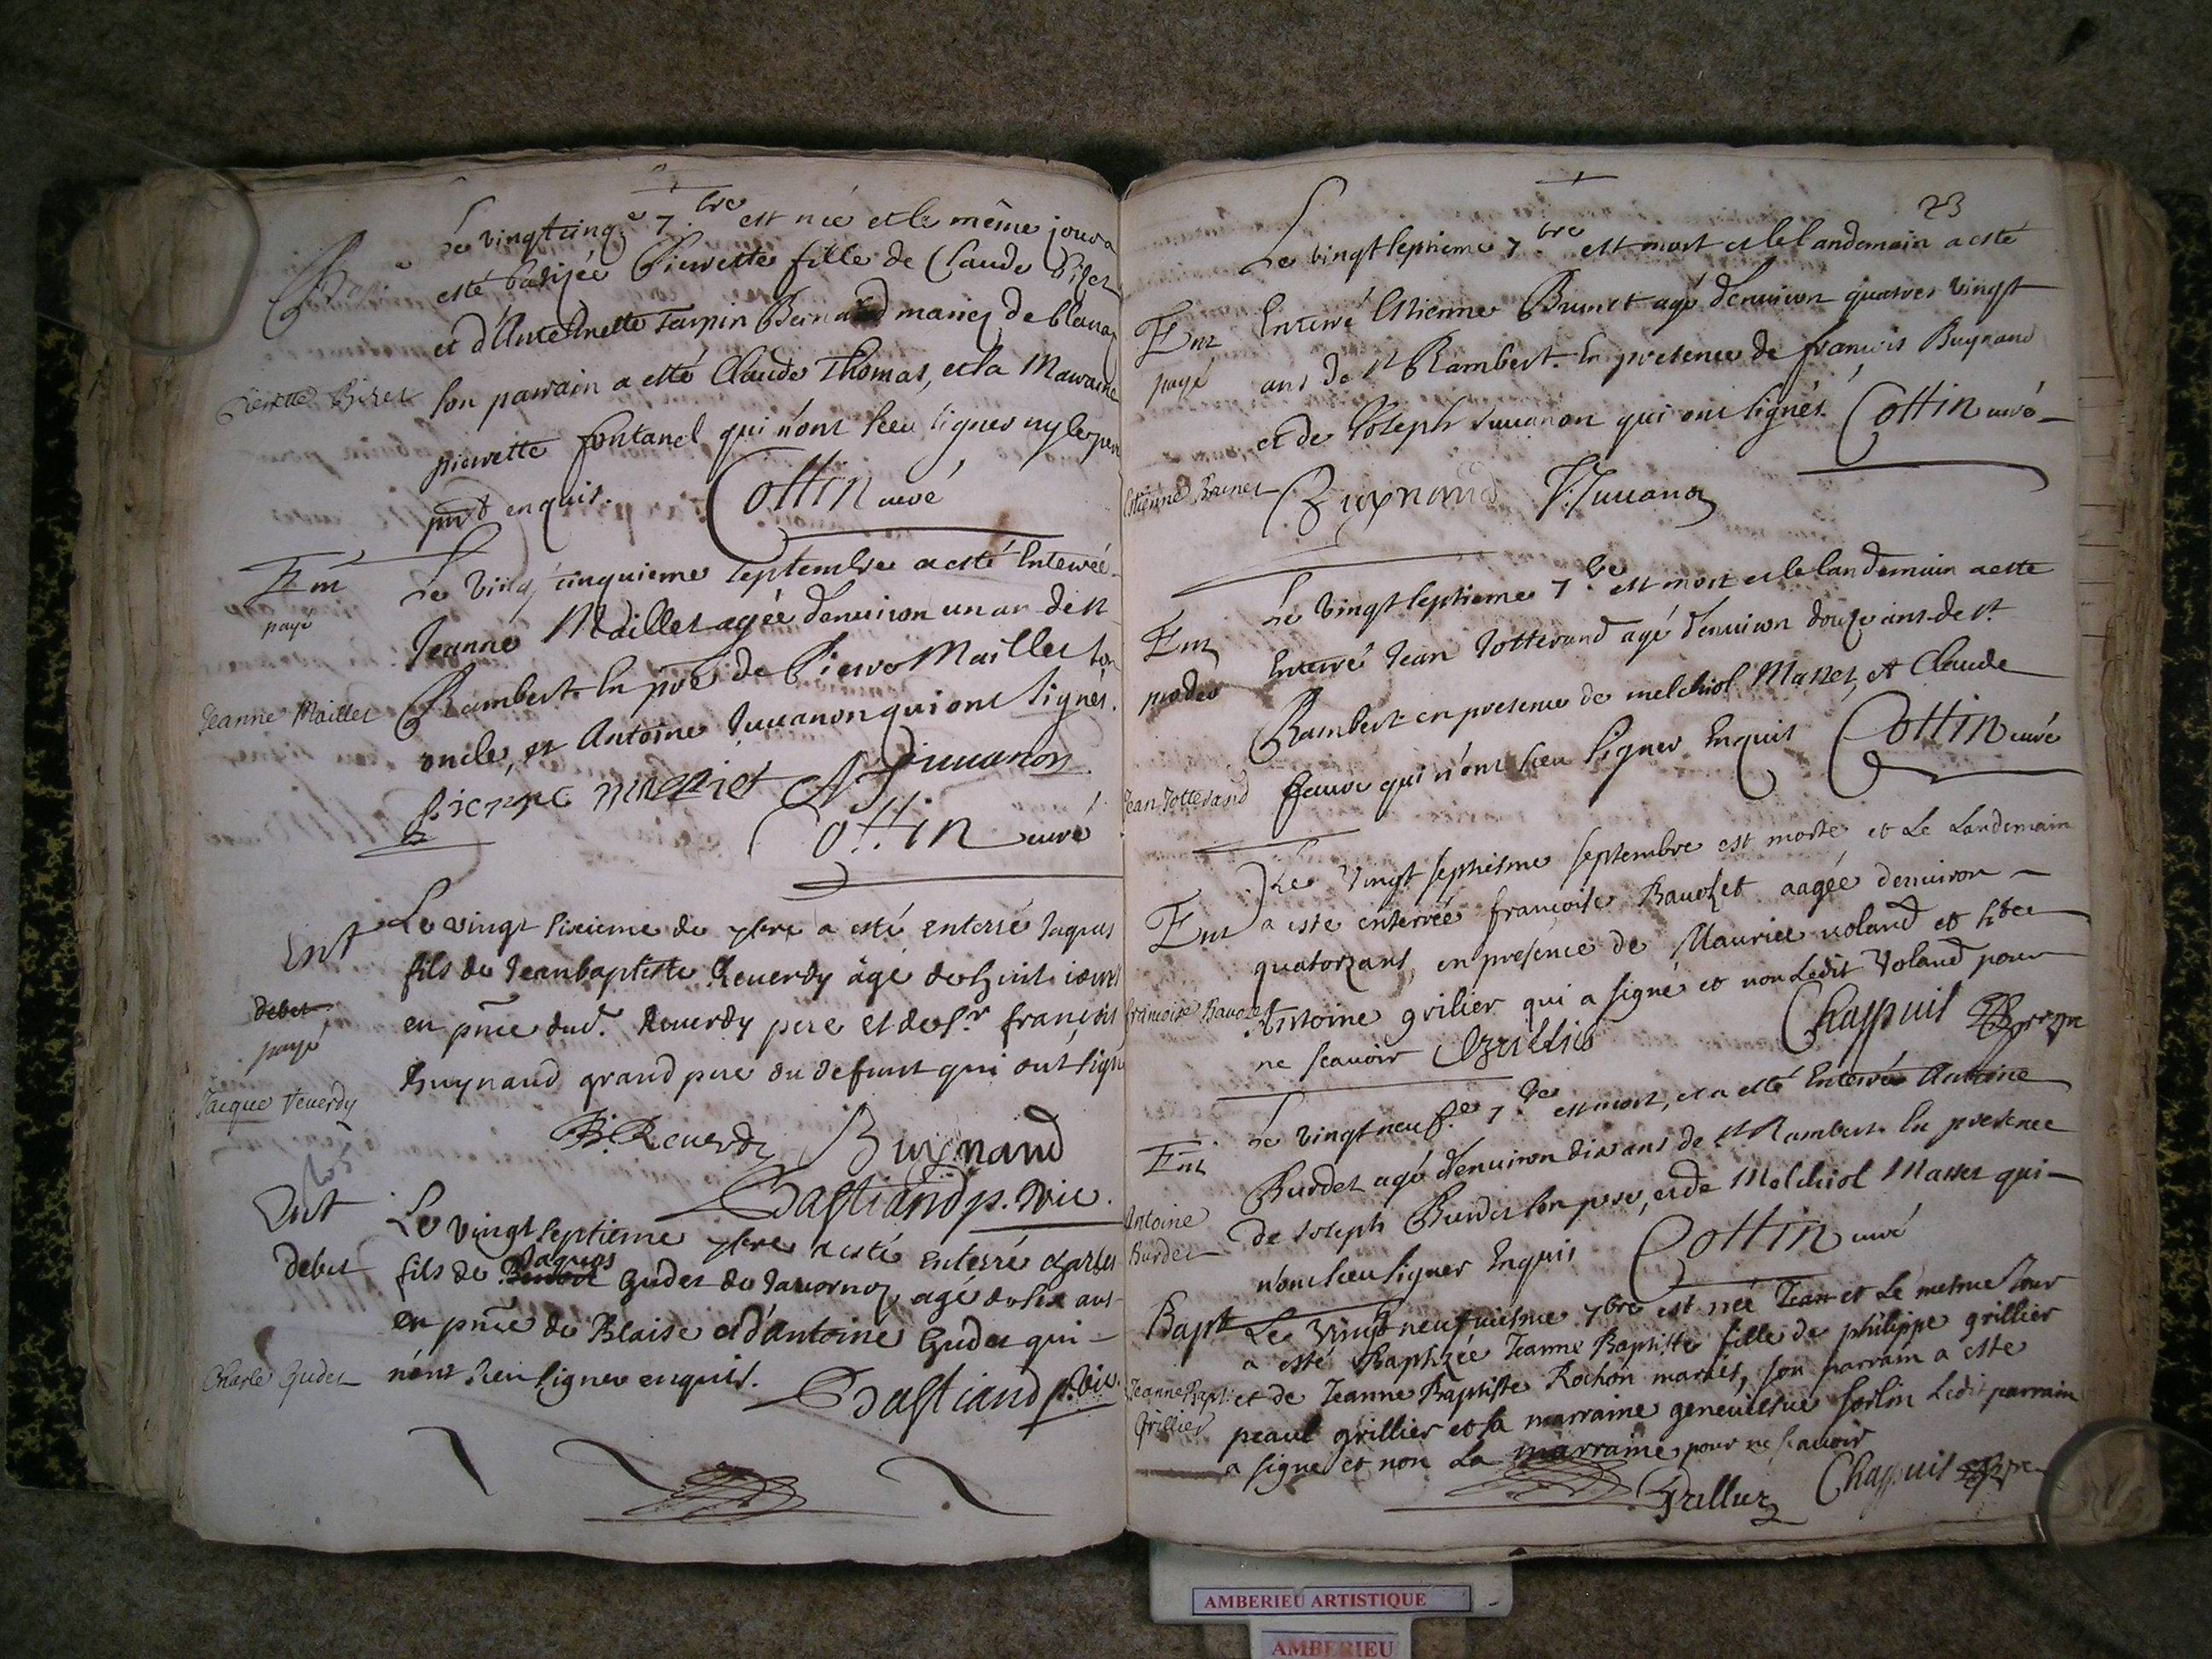 Le vingtcinq.e 7.bre est née et le même jour a
esté batisée Pierrette fille de Claude
et d'Anthelmette Tarpin Bernard mariez de
Pierrette
son parrain a esté Claude Thomas, et la Marraine
pierrette fontanel qui n'ont sceu signer ny le pere
enquis. Cottin curé
Ent
payé
Jeanne Maillet
Le vingt cinquieme septembre a esté Enterrée
Jeanne Maillet agée d'enuiron un an de st
Rambert. En pñce de Pierre Maillet son
oncle, et Antoine Juuanon qui ont signés.
A Juuanon
Cottin curé
Ent
debet
payé
Jacque Reuerdy
Le vingt sixieme de 7bre a esté enterré Jaques
fils de Jean baptiste Reuerdy âgé de huit jours
en pñce dud. Reuerdy pere et de sr. françois
Buynand grand pere du defunt qui ont signé
B. Reuerdy Buynand
Bastiand p. vic.
Ent
debet
Charle Gudet
Le vingt septieme 7bre a esté enterré Charles
fils de Jaques Gudet de Javornoz, agé de six ans
en pñce de Blaise et d'antoine Gudet qui
n'ont sceu signer enquis. Bastiand p. vic.
23
Le vingt septieme 7.bre est mort et le landemain a esté
Ent
payé
Enterré Estienne Brunet agé d'enuiron quatres vingt
ans de st Rambert. En presence de françois Buynand
et de Joseph Juuanon qui ont signés. Cottin curé
Estienne Brunet
Buynand J. Juuanon
Ent
pro deo
Jean Totterand
Le vingt septieme 7.bre est mort et le landemain a esté
Enterré Jean Totterand agé d'enuiron douze ans de st.
Rambert en presence de melchiol Masset, et Claude
faure qui n'ont sceu signer Enquis Cottin curé
Ent
Le vingt septiesme septembre est morte et Le Landemain
a este enterrée françoise Bauozet aagée denuiron
quatorz ans, en presence de Maurice uoland et
françoise Bauozet
Antoine grilier qui a signé et non Ledit Voland pour
ne scauoir Grillier Chappuis
Ent
Antoine
Burdet
Le vingt neuf.e 7.bre est mort, et a esté Enterré Antoine
Burdet agé d'enuiron dix ans de st Rambert. En presence
de Joseph Burdet son pere, et de Melchiol Masset qui
n'ont sceu signer Enquis Cottin curé
Bapt
Jeanne Bapt:
Grillier
Le vingt neufuiesme 7bre est née Jean et Le mesme Jour
a esté Baptizée Jeanne Baptiste fille de philippe grillier
et de Jeanne Baptiste Rochon mariés, son parrain a este
peaul grillier et sa marraine geneuiesue sorlin Ledit parrain
a signé et non La marraine pour ne scauoir
Grillier Chappuis
AMBERIEU ARTISTIQUE
AMBERIEU